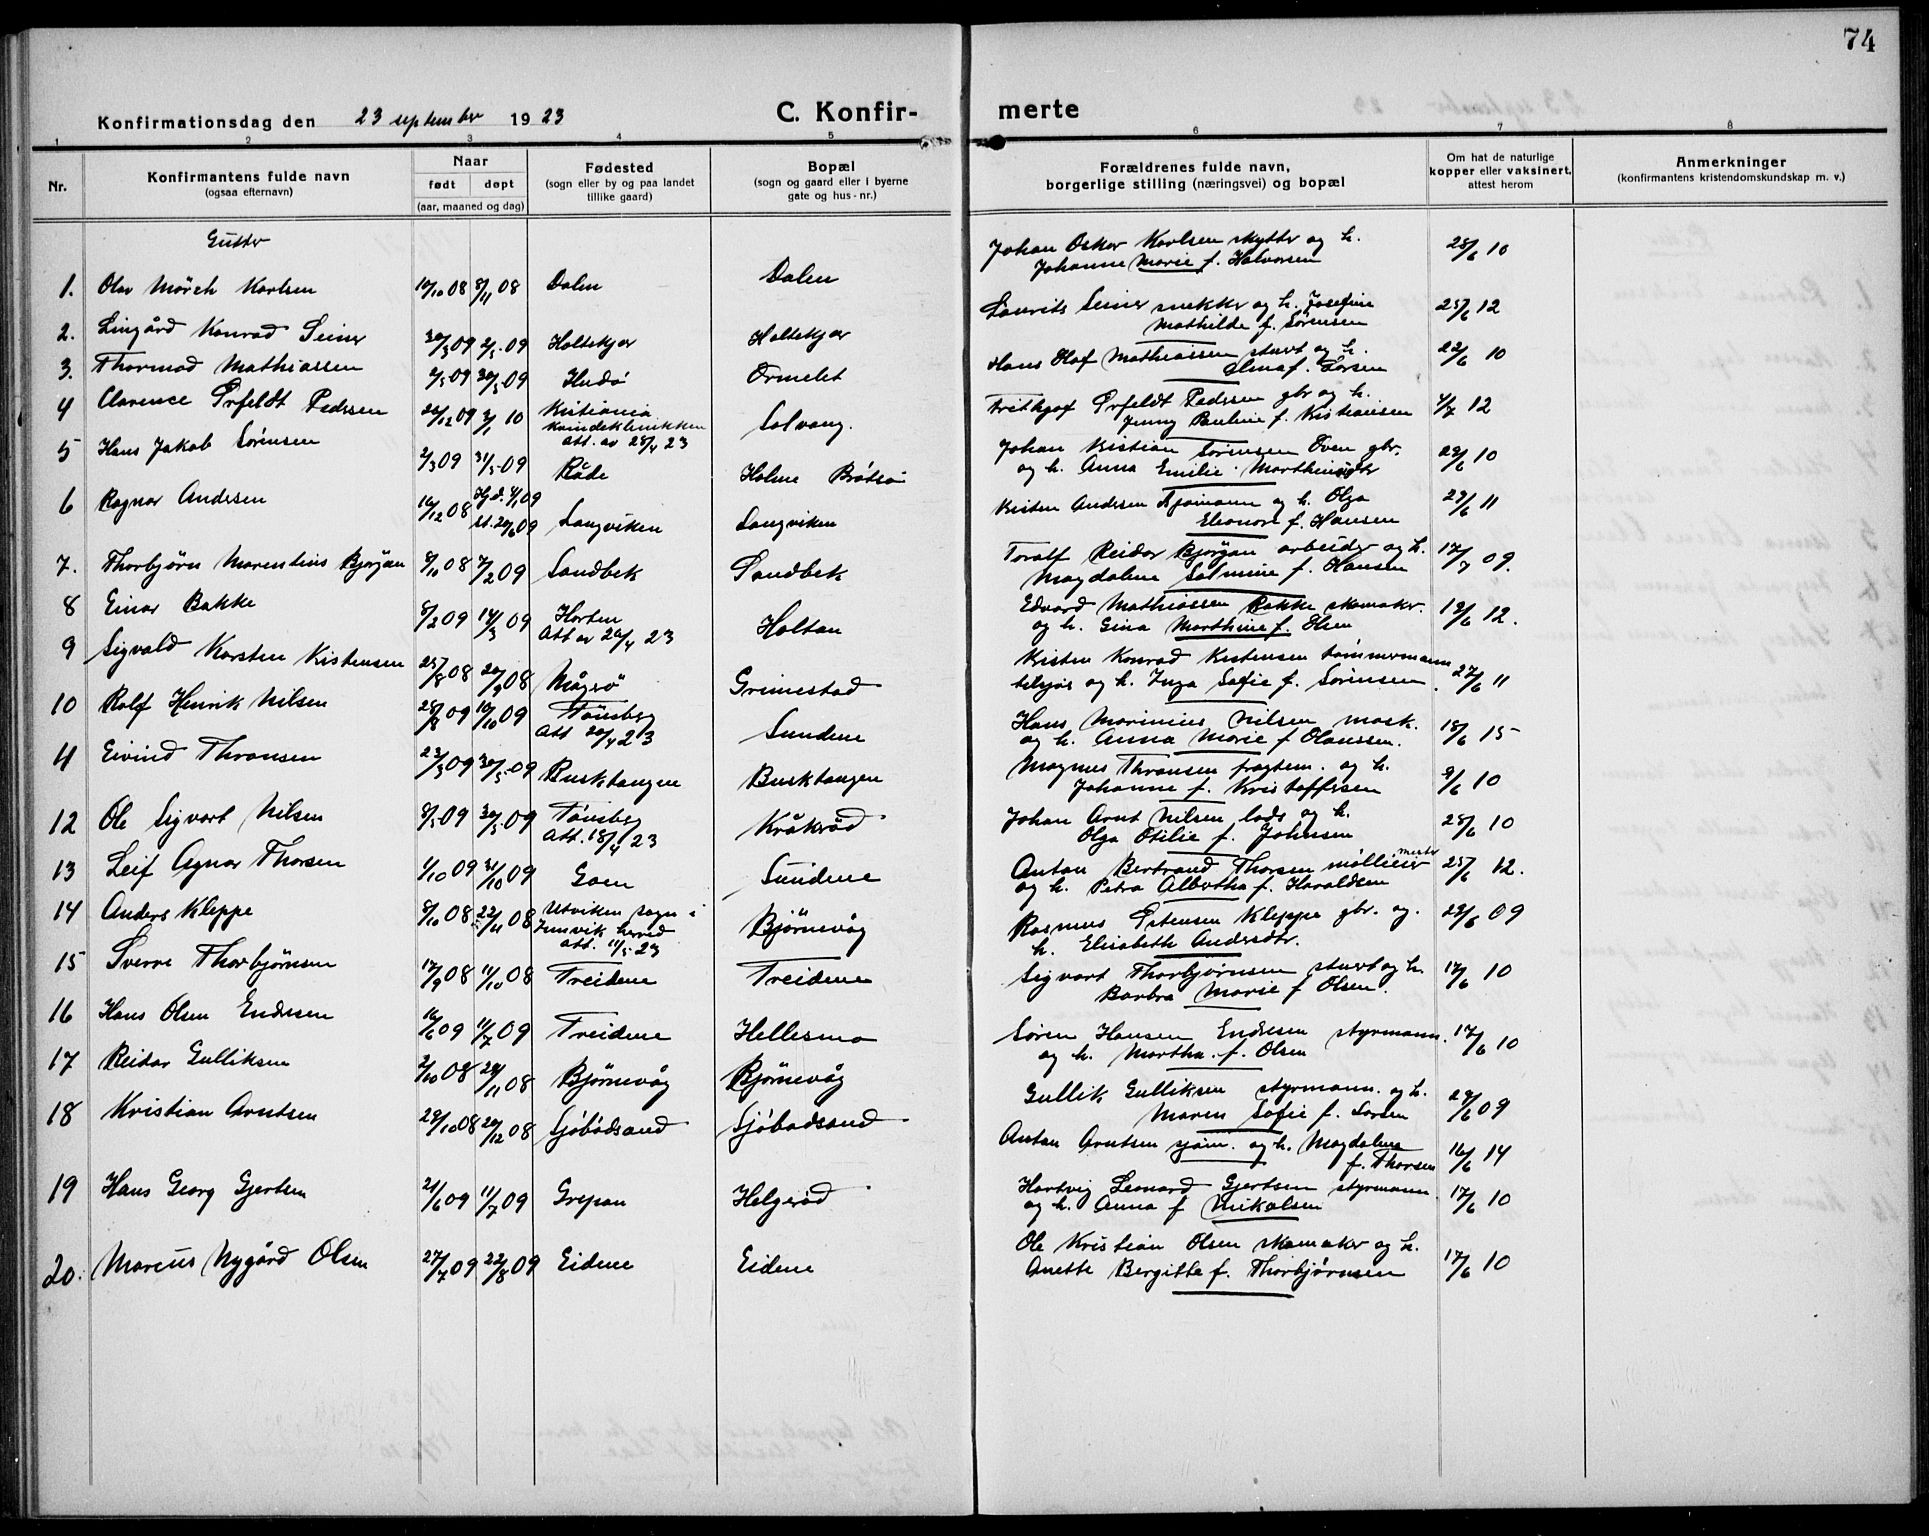 74
Konfirmationsdag den 23 september 1923
C. Konfir-
merte
1 2 3 4 5 6 7 8
Nr.
Konfirmantens fulde navn
(ogsaa efternavn)
Naar
født døpt
(aar, maaned og dag)
Fødested
(sogn eller by og paa landet
tillike gaard)
Bopæl
(sogn og gaard eller i byerne
gate og hus-nr.)
Forældrenes fulde navn,
borgerlige stilling (næringsvei) og bopæl
Om hat de naturlige
kopper eller vaksinert,
attest herom
Anmerkninger
(konfirmantens kristendomskundskap m. v.)
Gutter
1. Olav Mørch Karlsen 10/10 08 8/11 08 Dalen Dalen
Johan Oskar Karlsen skytter og h.
Johanne Marie f. Halvorsen 28/6 10
2. Lingård Konrad Seiner 30/3 09 2/5 09 Holtekjær Holtekjær
Laurits Seiner snekker og h. Josefine
Mathilde f. Sørensen 25/6 12
3. Thormod Mathiassen 2/5 09 30/5 09 Hudø Ormelet
Hans Olaf Mathiassen stuert og h.
Elina f. Larsen 22/6 10
4 Clarence Ørfeldt Pedersen 26/12 09 2/1 10 Kristiania
Kvindeklinikken
att. av 28/4 23
Solvang.
Frithjof Ørfeldt Pedersen gbr og h.
Jenny Pauline f. Kristiansen 4/7 12
5 Hans Jakob Sørensen 2/3 09 31/5 09 Råde Holme Brøtsø
Johan Kristian Sørensen Oven gbr.
og h. Anna Emilie Marthinsdtr 29/6 10
6 Ragnar Andersen 16/12 08 Hj.d. 4/1 09
st. 20/6 09 Langviken Langviken
Kristen Andersen sjømann og h. Olga
Eleonore f. Hansen 29/6 11
7. Thorbjørn Marentius Bjørgan 8/10 08 7/2 09 Sandbek Sandbek
Toralf Reidar Bjørgan arbeider og h.
Magdalene Salmine f. Hansen 17/7 09.
8 Einar Bakke 8/2 09 14/3 09 Horten
Att av 20/4 23
Holtan
Edvard Mathiassen Bakke skomaker.
og h. Gina Marthine f. Olsen 19/6 12.
9 Sigvald Karsten Kristensen 25/8 08 20/9 08 Mågerø Grimestad
Kristen Konrad Kristensen tømmermann
tilsjøs og h. Inga Sofie f. Sørensen. 27/6 11
10 Rolf Henrik Nilsen 28/8 09 10/10 09 Tønsberg
Att 20/4 23
Sundene
Hans Marinius Nilsen mask.
og h. Anna Marie f Olaussen. 18/6 15
11 Eivind Thransen 23/3 09 30/5 09 Busktangen Busktangen
Magnus Thransen fragtem. og h.
Johanne f. Kristoffersen 9/6 10
12 Ole Sigvart Nilsen 8/5 09 30/5 09 Tønsberg
Att. 18/4 23
Kråkrød
Johan Arnt Nilsen lods og h.
Olga Otilie f. Johnsen 28/6 10
13 Leif Agnar Thorsen 1/10 09 31/10 09 Goen Sundene
Anton Bertrand Thorsen møllermester
og h. Petra Albertha f. Haraldsen 25/6 12.
14 Anders Kleppe 8/10 08 22/11 08 Utviken sogn i
Innvik herred
att. 11/5 23
Bjørnevåg
Rasmus Østensen Kleppe gbr. og.
h. Elisabeth Andersdtr. 28/6 09
15 Sverre Thorbjørnsen 17/9 08 11/10 08 Treidene Treidene
Sigvart Thorbjørnsen stuert og h.
Barbra Marie f Olsen. 17/6 10
16 Hans Olsen Endresen 16/6 09 11/7 09 Treidene Hellesmo
Søren Hansen Endresen styrmann.
og h. Martha. f. Olsen 17/6 10
17 Reidar Gulliksen 2/10 08 29/11 08 Bjørnevåg Bjørnevåg
Gullik Gulliksen styrmann. og h.
Maren Sofie f. Larsen 29/6 09
18 Kristian Arntsen 29/10 08 20/12 08 Sjøbodsand Sjøbodsand
Anton Arntsen sjøm. og h. Magdalena
f. Thorsen 16/6 14
19 Hans Georg Gjertsen 21/6 09 11/7 09 Grepan Helgerød
Hartvig Leonard Gjertsen styrmann.
og h. Anna f Mikalsen 17/6 10
20. Marcus Nygård Olsen 27/7 09 22/8 09 Eidene Eidene
Ole Kristian Olsen skomaker og h.
Anette Bergitte f. Thorbjørnsen 17/6 10